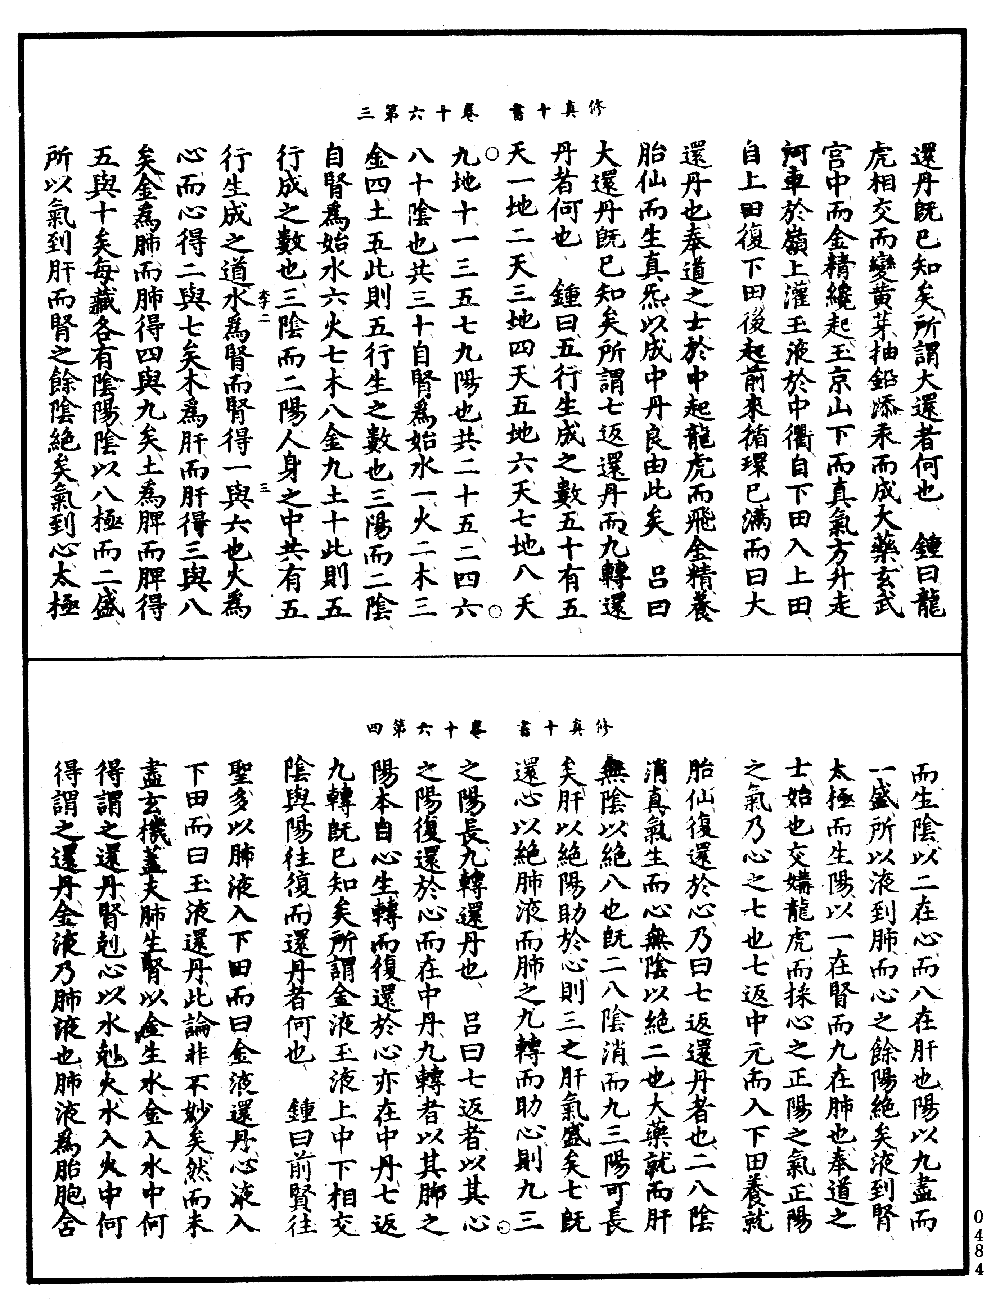 修真十書　卷十六第三
還丹既已知矣所謂大還者何也　鍾曰龍
虎相交而變黃芽抽鉛添汞而成大藥玄武
宮中而金精纔起玉京山下而真氣方升走
河車於嶺上灌玉液於中衢自下田入上田
自上田復下田後起前來循環已滿而曰大
還丹也奉道之士於中起龍虎而飛金精養
胎仙而生真炁以成中丹良由此矣　呂曰
大還丹既已知矣所謂七返還丹而九轉還
丹者何也　鍾曰五行生成之數五十有五
天一地二天三地四天五地六天七地八天
九地十一三五七九陽也共二十五二四六
八十陰也共三十自腎為始水一火二木三
金四土五此則五行生之數也三陽而二陰
自腎為始水六火七木八金九土十此則五
行成之數也三陰而二陽人身之中共有五
李二　三
行生成之道水為腎而腎得一與六也火為
心而心得二與七矣木為肝而肝得三與八
矣金為肺而肺得四與九矣土為脾而脾得
五與十矣每藏各有陰陽陰以八極而二盛
所以氣到肝而腎之餘陰絕矣氣到心太極
修真十書　卷十六第四
而生陰以二在心而八在肝也陽以九盡而
一盛所以液到肺而心之餘陽絕矣液到腎
太極而生陽以一在腎而九在肺也奉道之
士始也交媾龍虎而採心之正陽之氣正陽
之氣乃心之七也七返中元而入下田養就
胎仙復還於心乃曰七返還丹者也二八陰
消真氣生而心無陰以絕二也大藥就而肝
無陰以絕八也既二八陰消而九三陽可長
矣肝以絕陽助於心則三之肝氣盛矣七既
還心以絕肺液而肺之九轉而助心則九三
之陽長九轉還丹也　呂曰七返者以其心
之陽復還於心而在中丹九轉者以其肺之
陽本自心生轉而復還於心亦在中丹七返
九轉既已知矣所謂金液玉液上中下相交
陰與陽往復而還丹者何也　鍾曰前賢往
聖多以肺液入下田而曰金液還丹心液入
下田而曰玉液還丹此論非不妙矣然而未
盡玄機蓋夫肺生腎以金生水金入水中何
得謂之還丹腎剋心以水剋火水入火中何
得謂之還丹金液乃肺液也肺液為胎胞含
0484